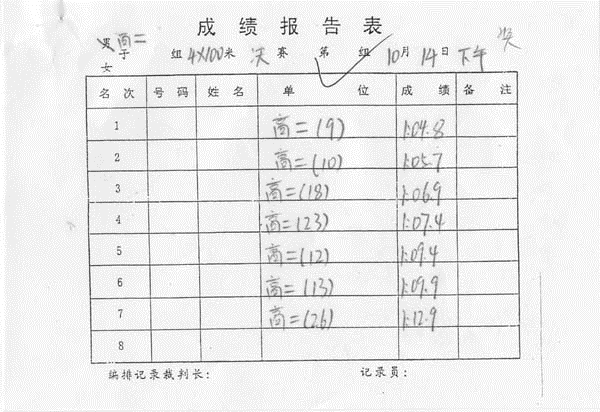 成绩报告表
男子 高二
女 组 4×100米 决赛 第 组 10月14日下午
名次 号码 姓名 单位 成绩 备注
1 高二(9) 1:04.8
2 高二(10) 1:05.7
3 高二(18) 1:06.9
4 高二(23) 1:07.4
5 高二(12) 1:09.4
6 高二(13) 1:09.9
7 高二(26) 1:12.9
8
编排记录裁判长: 记录员: